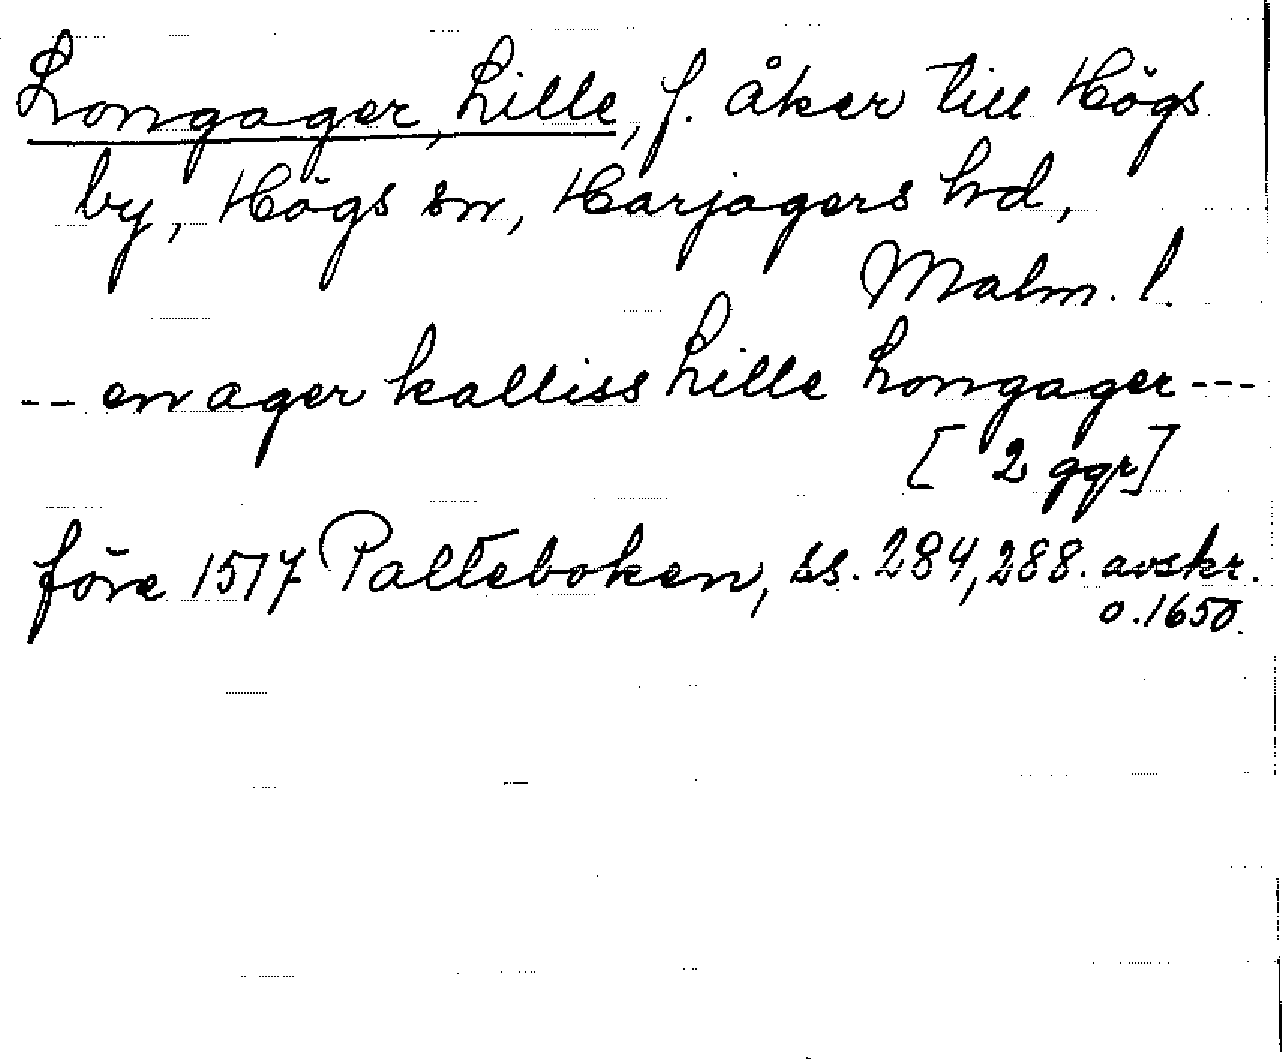 Longager, Lille, f. åker till Högs
by, Högs sn, Harjagers hd,
Malm. l.
-- en ager kalliss Lille Longager ---
[ 2 ggr]
före 1517 Palteboken, ss. 284, 288. avskr.
o. 1650.